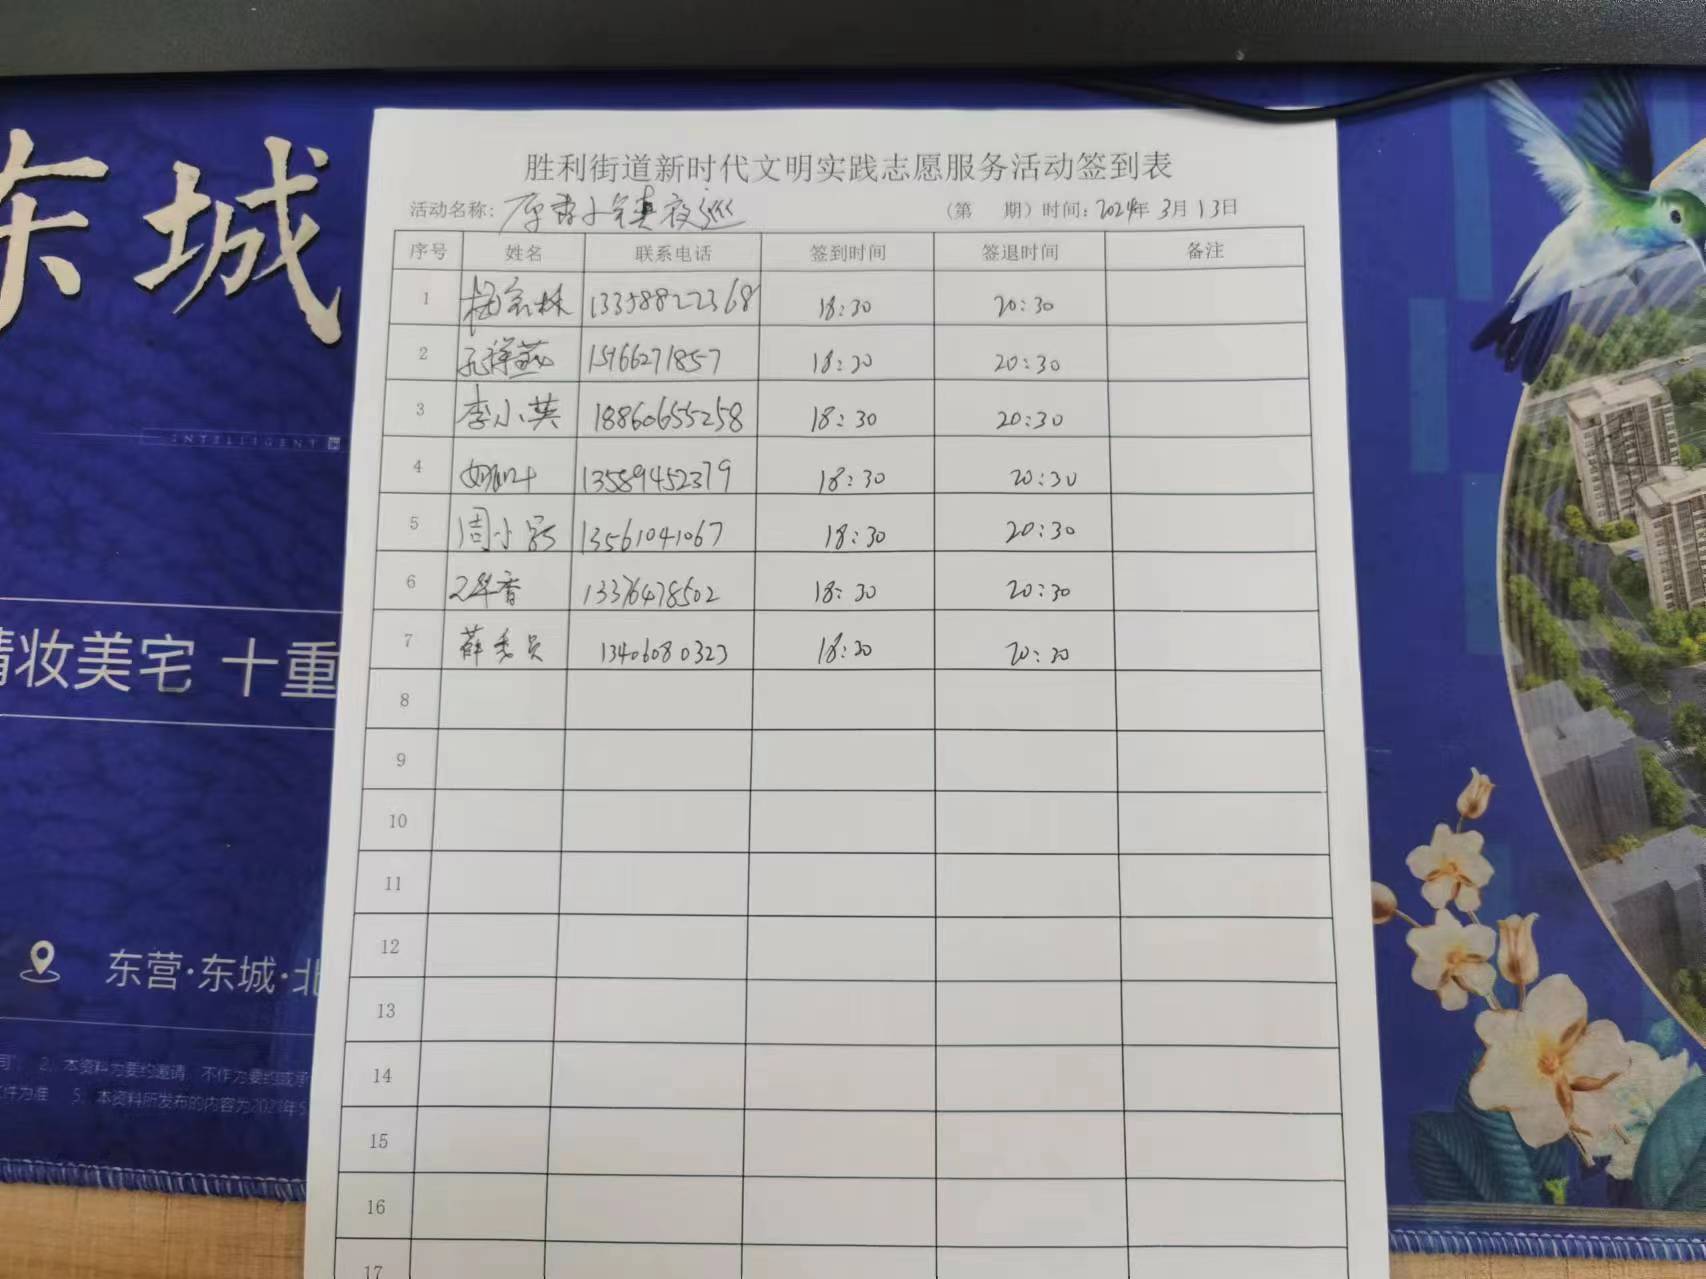 东城
INTELLIGENT
精妆美宅 十重
东营·东城·北
2、本资料为要约邀请,不作为要约或承
5、本资料所发布的内容为2021年5
胜利街道新时代文明实践志愿服务活动签到表
活动名称: 小镇夜巡 (第 期) 时间: 2024年 3月 13日
序号 姓名 联系电话 签到时间 签退时间 备注
1 13358822368 18:30 20:30
2 15966271857 18:30 20:30
3 李小英 18860655258 18:30 20:30
4 13589452379 18:30 20:30
5 周小 13561041067 18:30 20:30
6 13376478502 18:30 20:30
7 薛秀员 13406080323 18:30 20:30
8
9
10
11
12
13
14
15
16
17